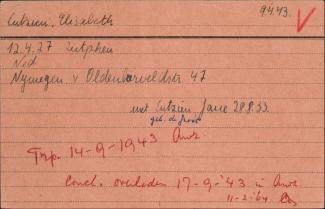 Cutzien, Elisabeth 9443.
12.4.27 Zutphen
Ned
Nijmegen. v Oldenbarneveldstr 47
met Cutzien Jane 28.8.33.
geb. de Groot
Trp. 14-9-1943 Auw.
Concl. overleden 17-9-'43 in Auw.
11-2-'64